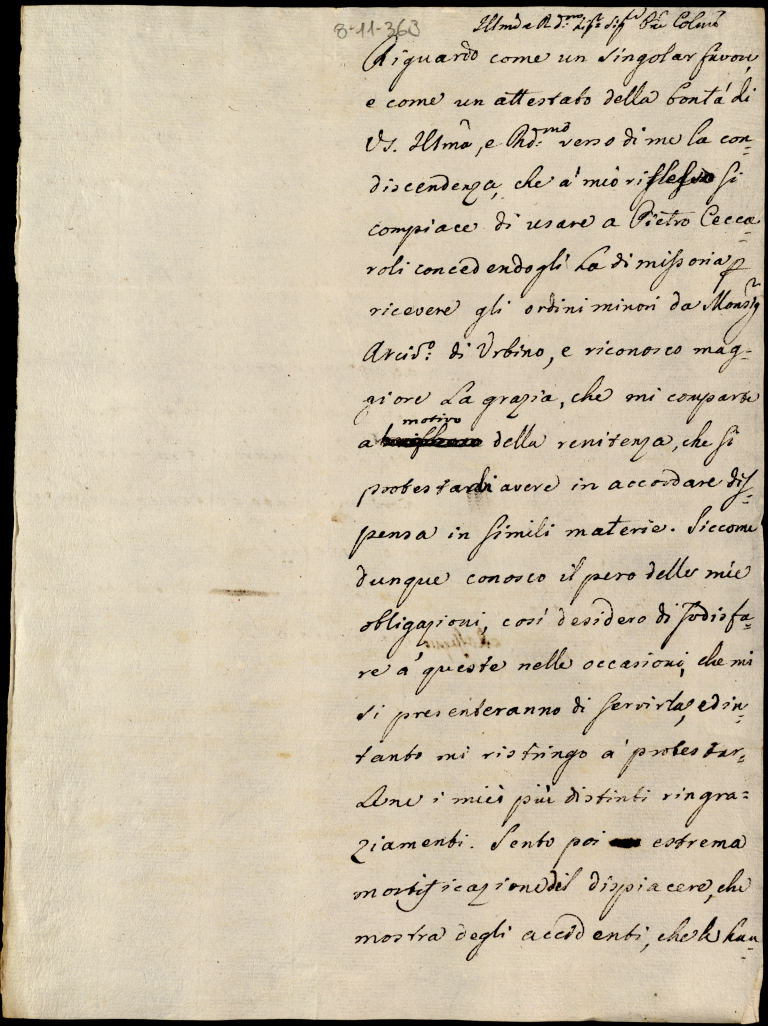 8-11-363
Illmo e R.dmo Sig.r Sig.r P.ne Col.mo
Riguardo come un singolar favore,
e come un attestato della bontà di
VS. Illmã, e Rd:mã verso di me la con-
discendenza, che a' mio riflesso si
compiace di usare a Pietro Cecca-
roli concedendogli la dimissoria p
ricevere gli ordini minori da Monsig.r
Arciv.o di Urbino, e riconosco mag-
giore la grazia, che mi comparte
a motivo della renitenza, che si
protesta di avere in accordare dis-
pensa in simili materie. Siccome
dunque conosco il peso delle mie
obligazioni, così desidero di sodisfa-
re a' queste nelle occasioni, che mi
si presenteranno di servirla, ed in-
tanto mi ristringo a' protestar-
Lene i miei più distinti ringra-
ziamenti. Sento poi estrema
mortificazione del dispiacere, che
mostra degli accidenti, che le han-